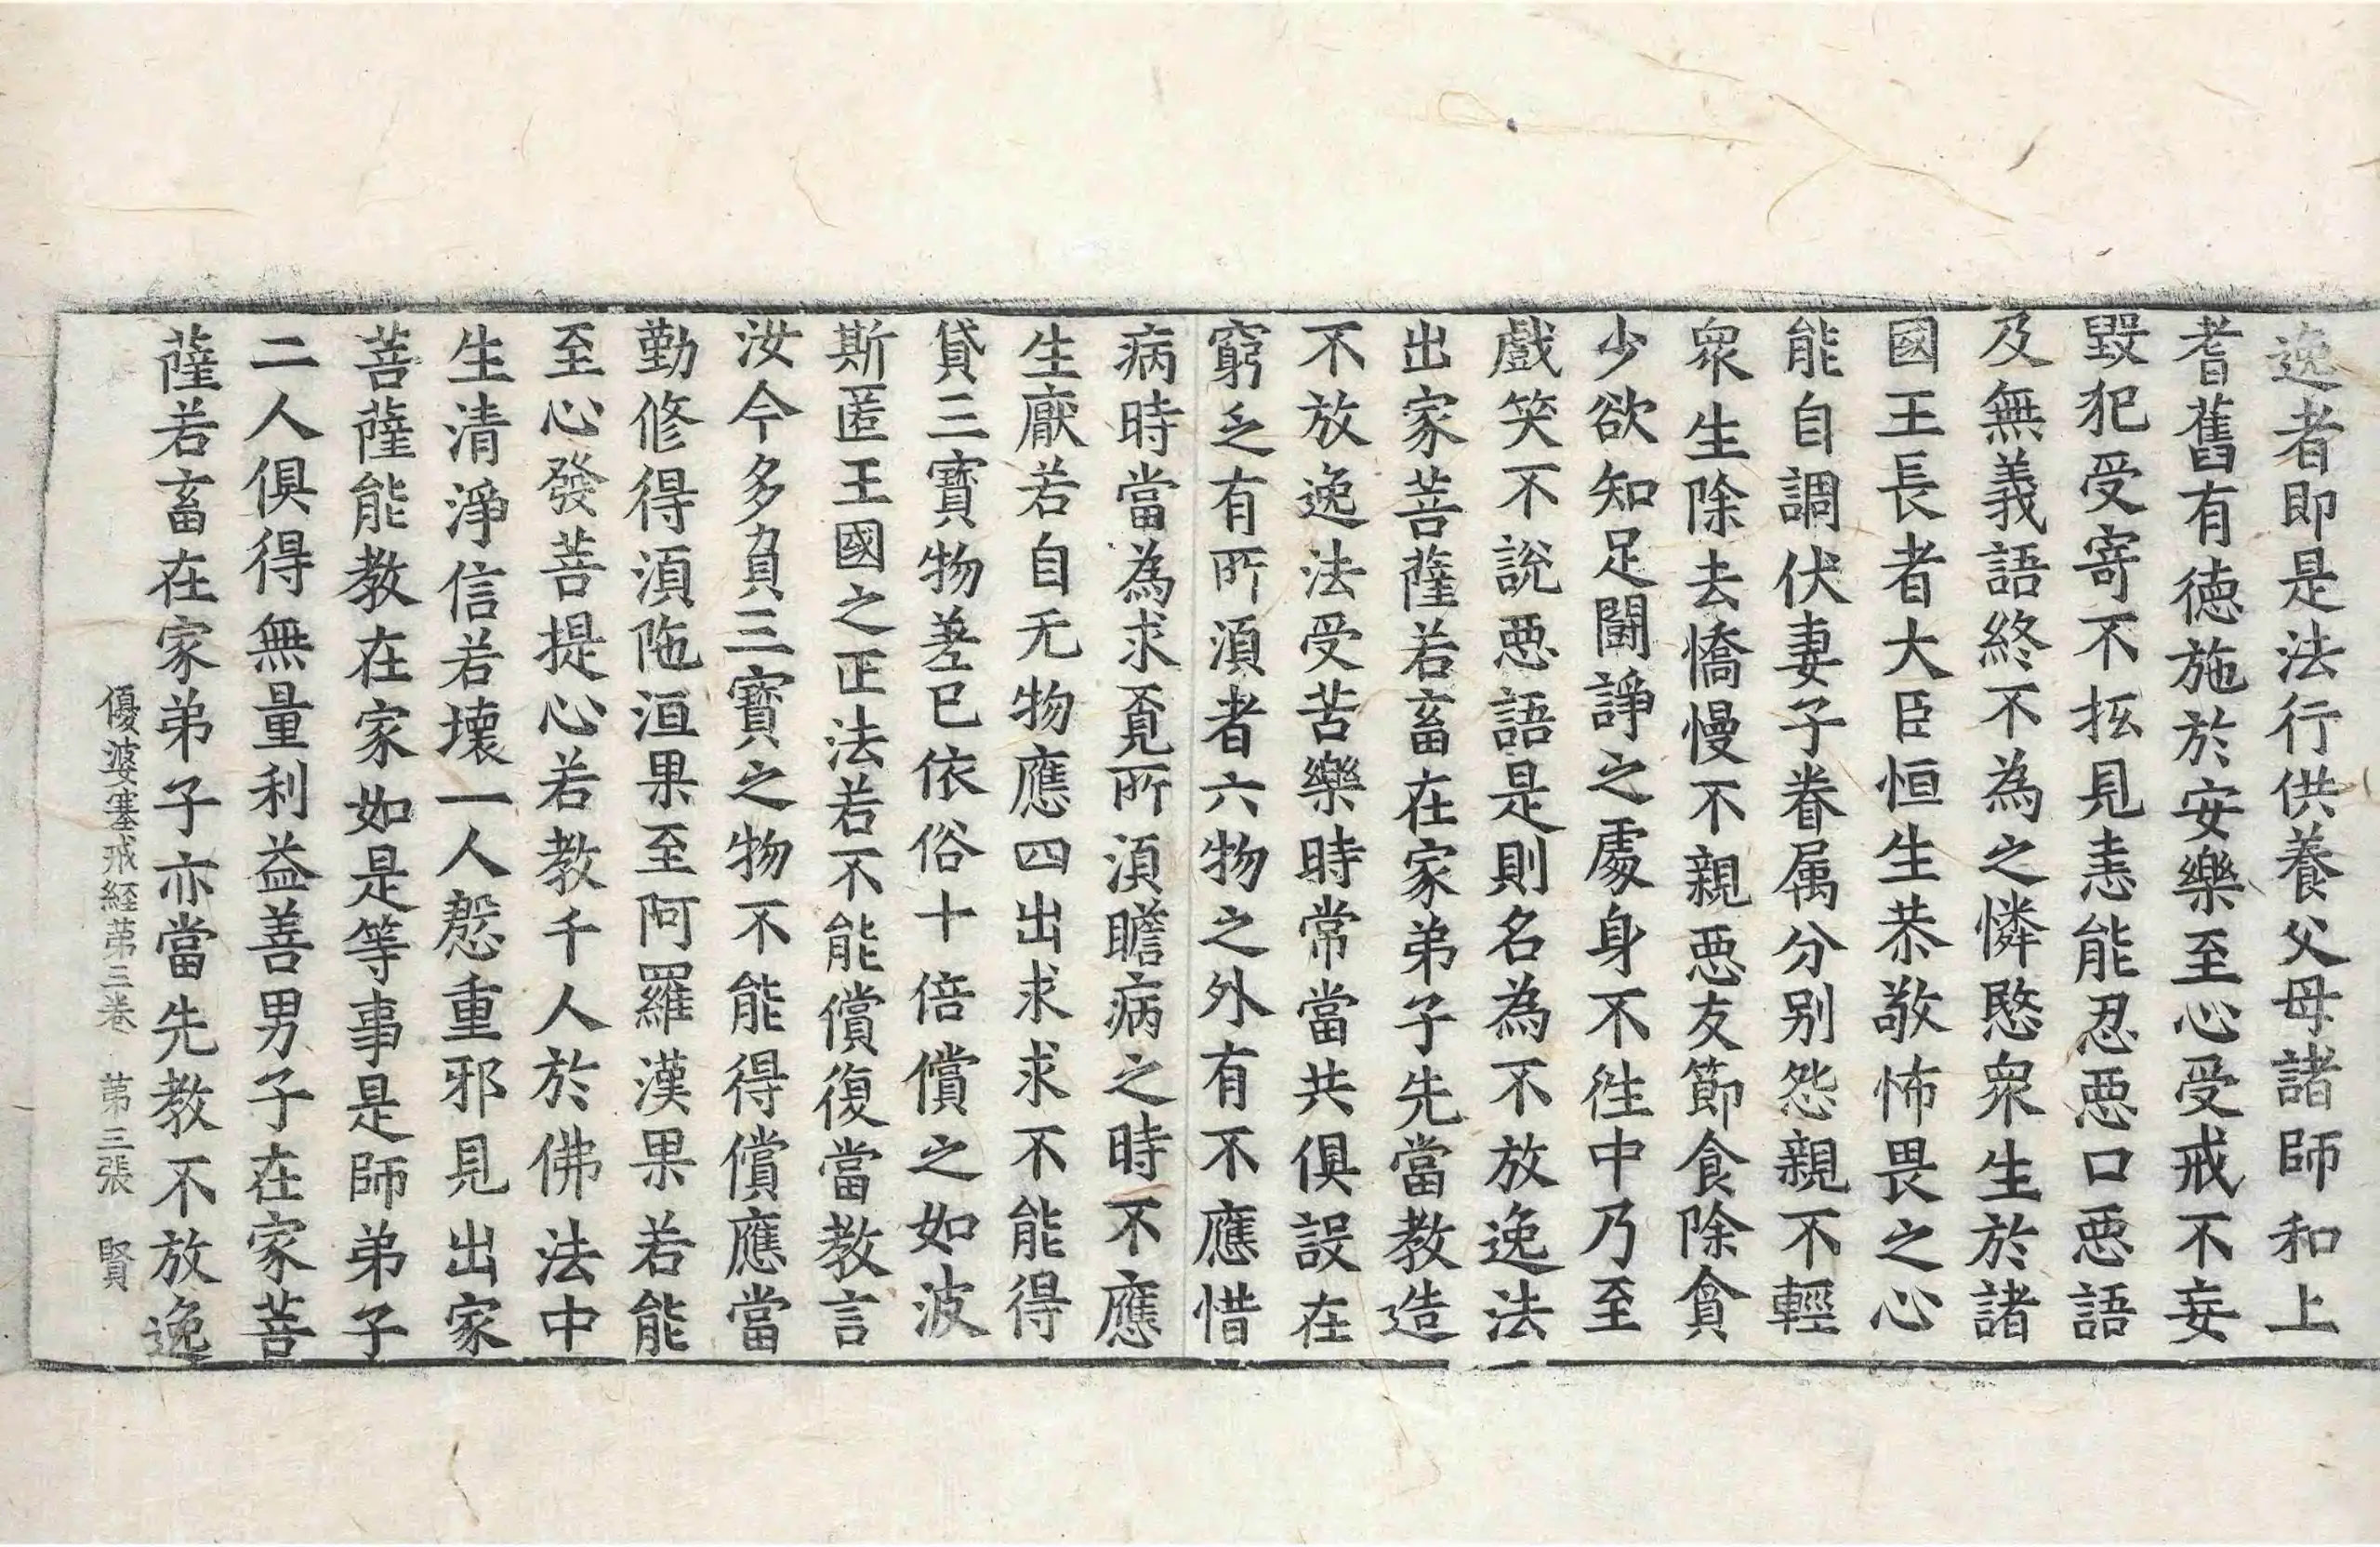 逸者即是法行供養父母諸師和上
耆舊有徳施於安樂至心受戒不妄
毀犯受寄不抂見恚能忍惡口惡語
及無義語終不為之憐愍衆生於諸
國王長者大臣恒生恭敬怖畏之心
能自調伏妻子眷属分別怨親不輕
衆生除去憍慢不親惡友節食除貪
少欲知足鬪諍之處身不往中乃至
戲笑不說惡語是則名為不放逸法
出家菩薩若畜在家弟子先當教造
不放逸法受苦樂時常當共俱設在
窮乏有所湏者六物之外有不應惜
病時當為求覓所湏瞻病之時不應
生厭若自无物應四出求求不能得
貸三寶物差已依俗十倍償之如波
斯匿王國之正法若不能償復當教言
汝今多負三寶之物不能得償應當
勤修得湏陁洹果至阿羅漢果若能
至心發菩提心若教千人於佛法中
生清淨信若壞一人慇重邪見出家
菩薩能教在家如是等事是師弟子
二人俱得無量利益善男子在家菩
薩若畜在家弟子亦當先教不放逸
優婆塞戒経苐三卷　苐三張　賢